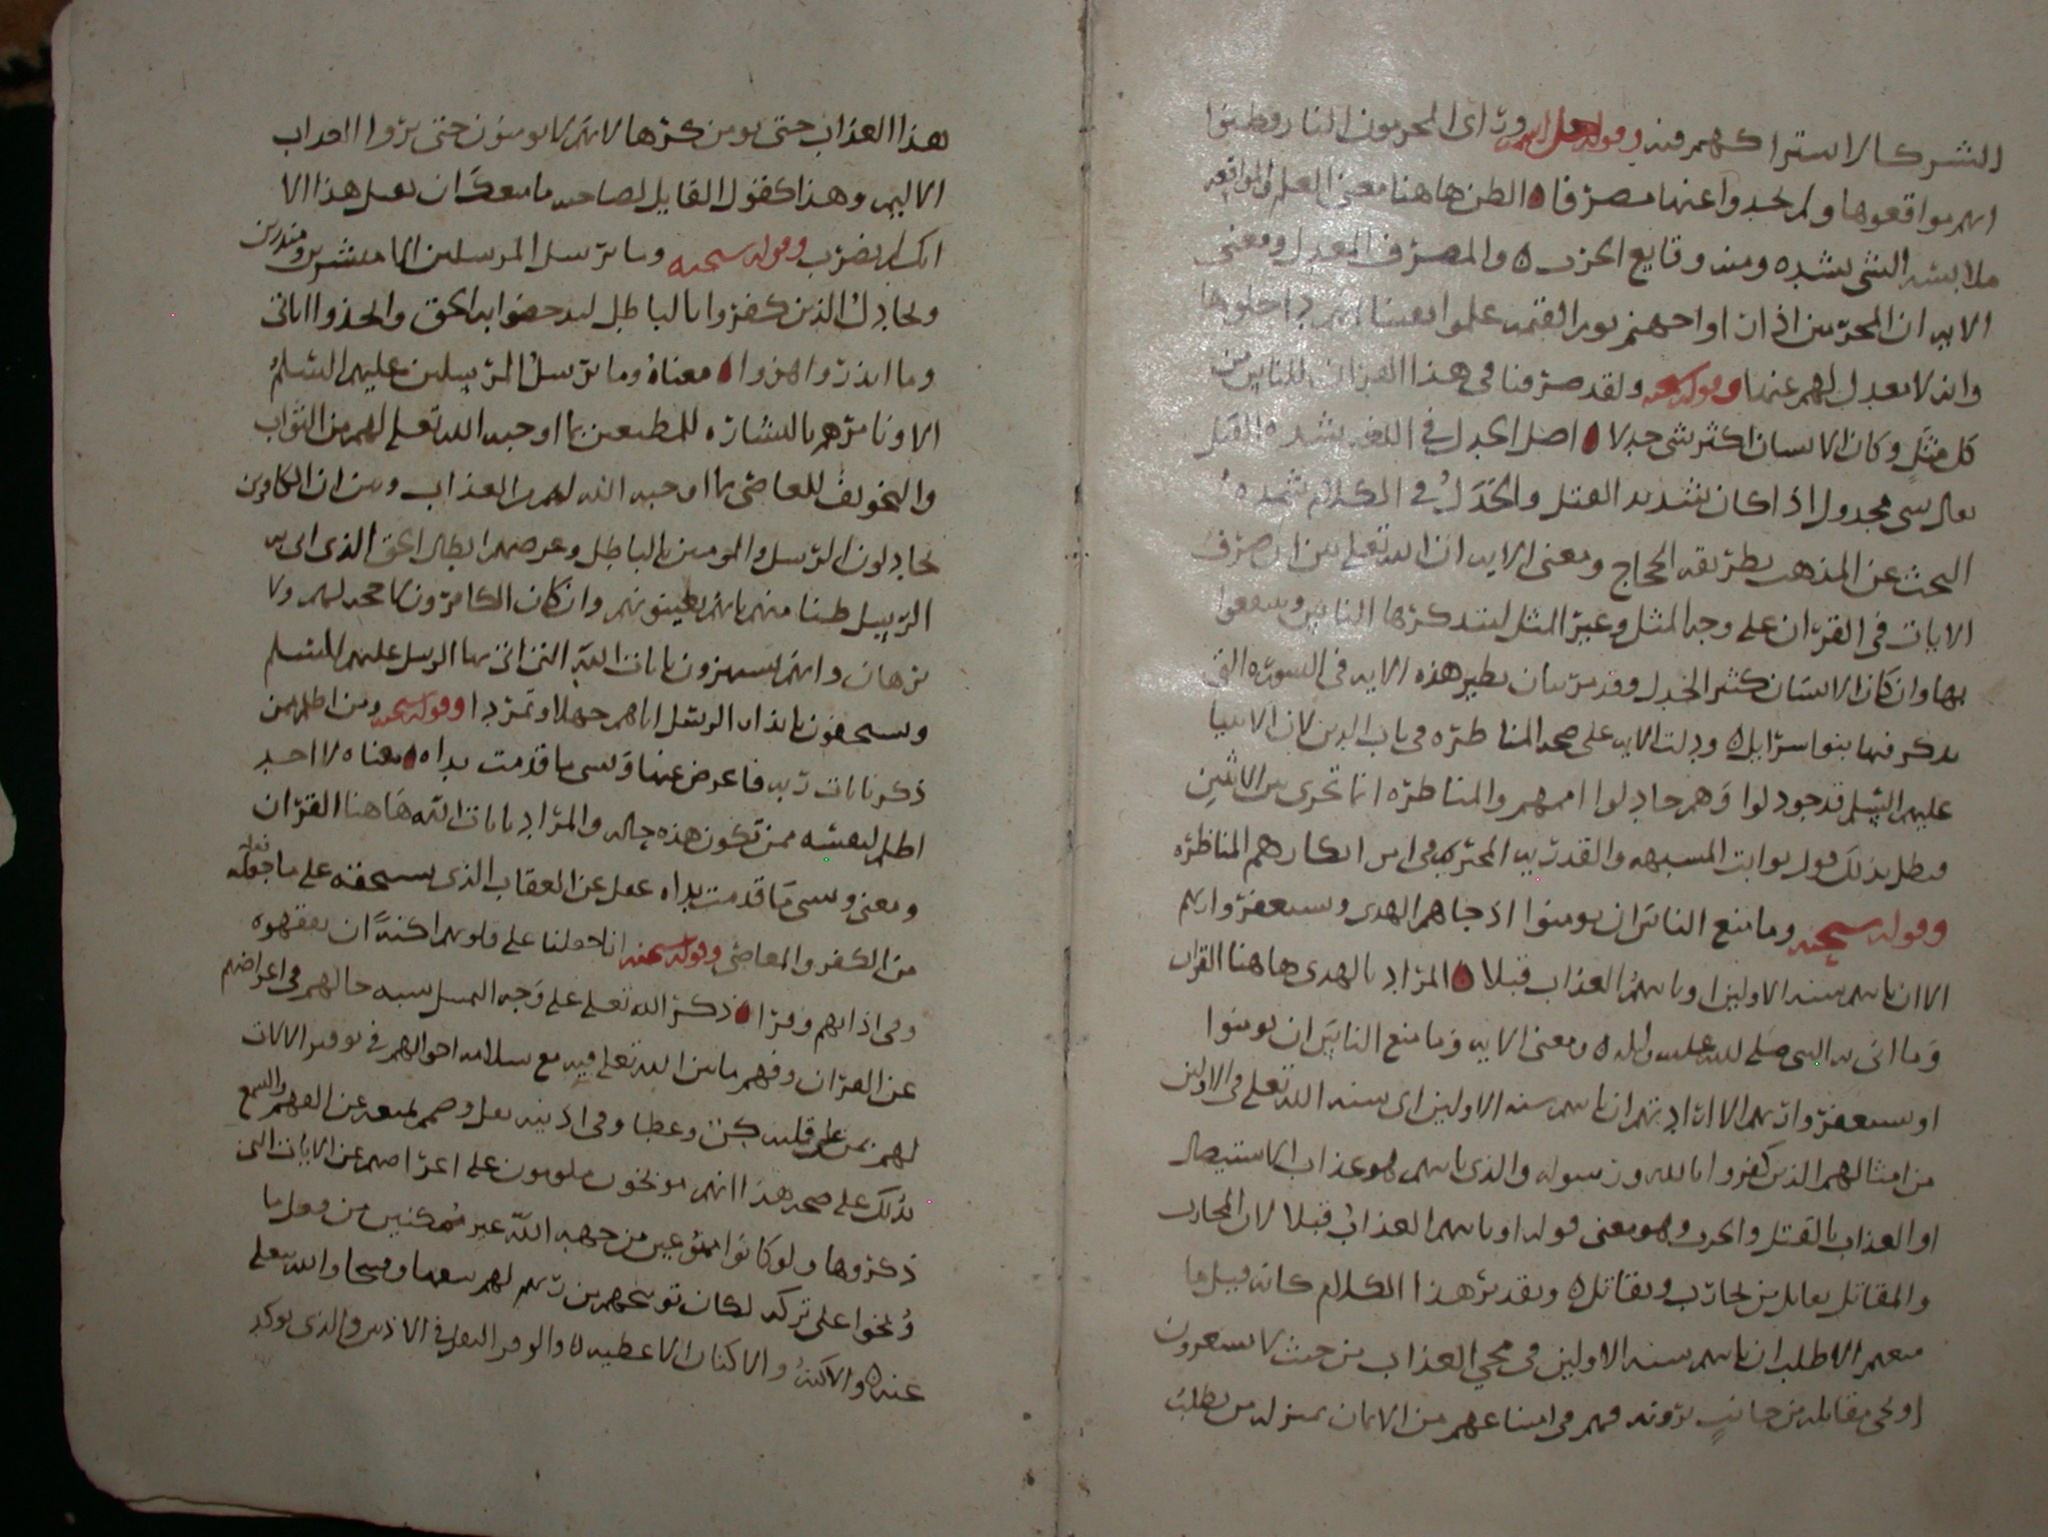 الشركا لاشتراكهم فيه وقوله جل اسمه ورأى المجرمون النار فظنوا
انهم مواقعوها ولم يجدوا عنها مصرفا الظن هاهنا معنى العلم والمواقعه
ملابسه الشي بشده ومنه وقايع الحرب والمصرف المعدل ومعنى
الايه ان المجرمين اذا راوا جهنم يوم القيمه علموا يقينا انهم داخلوها
وانه لا معدل لهم عنها وقوله سبحنه ولقد صرفنا في هذا القران للناس من
كل مثل وكان الانسان اكثر شي جدلا اصل الجدل في اللغه شده الفتل
يقال شي مجدول اذا كان شديد الفتل والجدل في الكلام شده
البحث عن المذهب بطريقه الحجاج ومعنى الايه ان الله تعلى بين انه صرف
الايات في القران على وجه المثل وغير المثل ليتذكرها الناس وينتفعوا
بها وان كان الانسان كثير الجدل وقد مر بيان نظير هذه الايه في السوره التي
يذكر فيها بنو اسرايل ودلت الايه على صحه المناظره في باب الدين لان الانبيا
عليهم السلم قد جودلوا وهم جادلوا اممهم والمناظره انما تجرى بين الاثنين
فبطل بذلك قول نوابت المشبهه والقدريه المجبره في انكارهم المناظره
وقوله سبحنه وما منع الناس ان يومنوا اذ جاهم الهدى ويستغفروا ربهم
الا ان تاتيهم سنه الاولين او ياتيهم العذاب قبلا المراد بالهدى هاهنا القران
وما اتى به النبي صلى الله عليه واله ومعنى الايه وما منع الناس ان يومنوا
او يستغفروا ربهم الا ارادتهم ان تاتيهم سنه الاولين اى سنه الله تعلى في الاولين
من امثالهم الذين كفروا بالله ورسوله والذى ياتيهم هو عذاب الاستيصال
او العذاب بالقتل والحرب وهو معنى قوله او ياتيهم العذاب قبلا لان المحارب
والمقاتل يقابل من يحارب ويقاتل وتقدير هذا الكلام كانه قيل ما
منعهم الا طلب ان تاتيهم سنه الاولين في مجي العذاب من حيث لا يشعرون
او مجي مقابله من جانب يرونه فهم في امتناعهم من الايمان بمنزله من يطلب
هذا العذاب حتى يومن كرها لانهم لا يومنون حتى يروا العذاب
الاليم وهذا كقول القايل لصاحبه ما منعك ان تعمل هذا الا
انك لم تضرب وقوله سبحنه وما نرسل المرسلين الا مبشرين ومنذرين
ويجادل الذين كفروا بالباطل ليدحضوا به الحق واتخذوا اياتى
وما انذروا هزوا معناه وما نرسل المرسلين عليهم السلم
الا ونامرهم بالبشاره للمطيعين بما اوجبه الله تعلى لهم من الثواب
والتخويف للعاصى بما اوجبه الله لهم من العذاب وبين ان الكافرين
يجادلون الرسل والمومنين بالباطل وغرضهم ابطال الحق الذى اتى به
الرسل ظنا منهم بانهم يغلبونهم وان كان الكافرون لا حجه لهم ولا
برهان وانهم يستهزون بايات الله التى اتى بها الرسل عليهم السلم
ويستخفون بانذار الرسل اياهم جهلا وتمردا وقوله سبحنه ومن اظلم ممن
ذكر بايات ربه فاعرض عنها ونسى ما قدمت يداه معناه لا احد
اظلم لنفسه ممن تكون هذه حاله والمراد بايات الله هاهنا القران
ومعنى ونسى ما قدمت يداه غفل عن العقاب الذى يستحقه على ما جعله
من الكفر والمعاصى وقوله سبحنه انا جعلنا على قلوبهم اكنة ان يفقهوه
وفى اذانهم وقرا ذكر الله تعلى على وجه المثل شبه حالهم في اعراضهم
عن القران وفهم ما بين الله تعلى فيه مع سلامه احوالهم في توفير الالات
لهم بمن على قلبه كن وغطا وفى اذنيه ثقل وصمم يمنعه عن الفهم والسمع
يدلك على صحه هذا انهم موبخون ملومون على اعراضهم عن الايات التى
ذكروها ولو كانوا ممنوعين من جهه الله غير متمكنين من فعل ما
وبخوا على تركه لكان توبيخهم من ربهم لهم سفها وقبيحا والله يتعلى
عنه والاكنة والاكنان الاغطيه والوقر الثقل في الاذن والذى يوكد